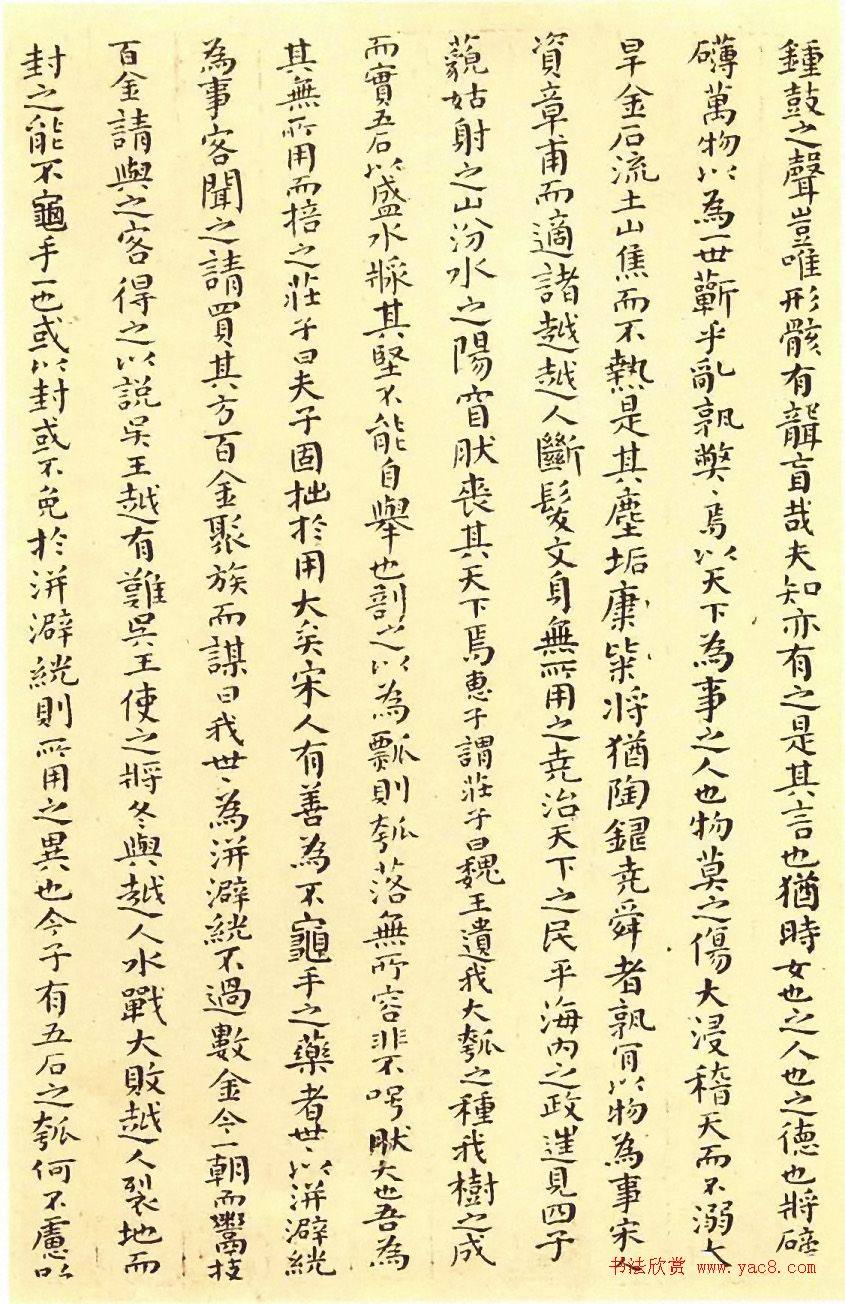 鍾鼓之聲豈唯形骸有聾盲哉夫知亦有之是其言也猶時女也之人也之德也將磅
礴萬物以為一世蘄乎亂孰弊、焉以天下為事之人也物莫之傷大浸稽天而不溺大
旱金石流土山焦而不熱是其塵垢粃糠將猶陶鑄堯舜者孰肎以物為事宋
資章甫而適諸越越人斷髮文身無所用之堯治天下之民平海內之政遑見四子
藐姑射之山汾水之陽窅肰喪其天下焉惠子謂莊子曰魏王遺我大瓠之種我樹之成
而實五石以盛水漿其堅不能自舉也剖之以為瓢則瓠落無所容非不呺肰大也吾為
其無所用而掊之莊子曰夫子固拙於用大矣宋人有善為不龜手之藥者世、以洴澼絖
為事客聞之請買其方百金聚族而謀曰我世、為洴澼絖不過數金今一朝而鬻技
百金請與之客得之以說吳王越有難吳王使之將冬與越人水戰大敗越人裂地而
封之能不龜手一也或以封或不免於洴澼絖則所用之異也今子有五石之瓠何不慮以
书法欣赏 www.yac8.com